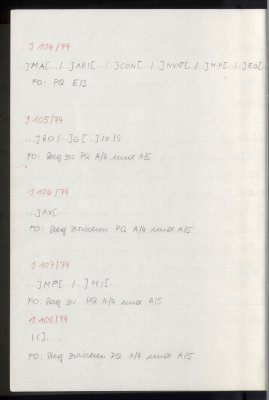 J 104/74
...]MA[.../...]ARI[.../...]CON[.../...]NVN[.../..]MP[.../..]EG[..
FO: PQ E/3
J 105/74
...]RO/..]G[..]IV/S
FO: Steg zw. PQ A/4 und A/5
J 106/74
...]AV[...
FO: Steg zwischen PQ A/4 und A/5
J 107/74
...]MP[.../...]PEI[..
FO: Steg zw. PQ A/4 und A/5
J 108/74
IC]....
FO: Steg zwischen PQ A/4 und A/5